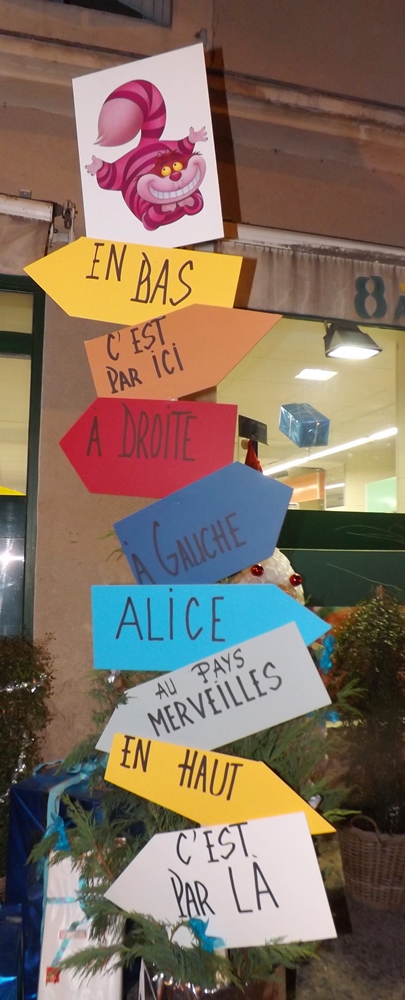 8
EN BAS
C'EST
PAR ICI
À DROITE
à GAUCHE
ALICE
AU PAYS
MERVEILLES
EN HAUT
C'EST
PAR LÀ